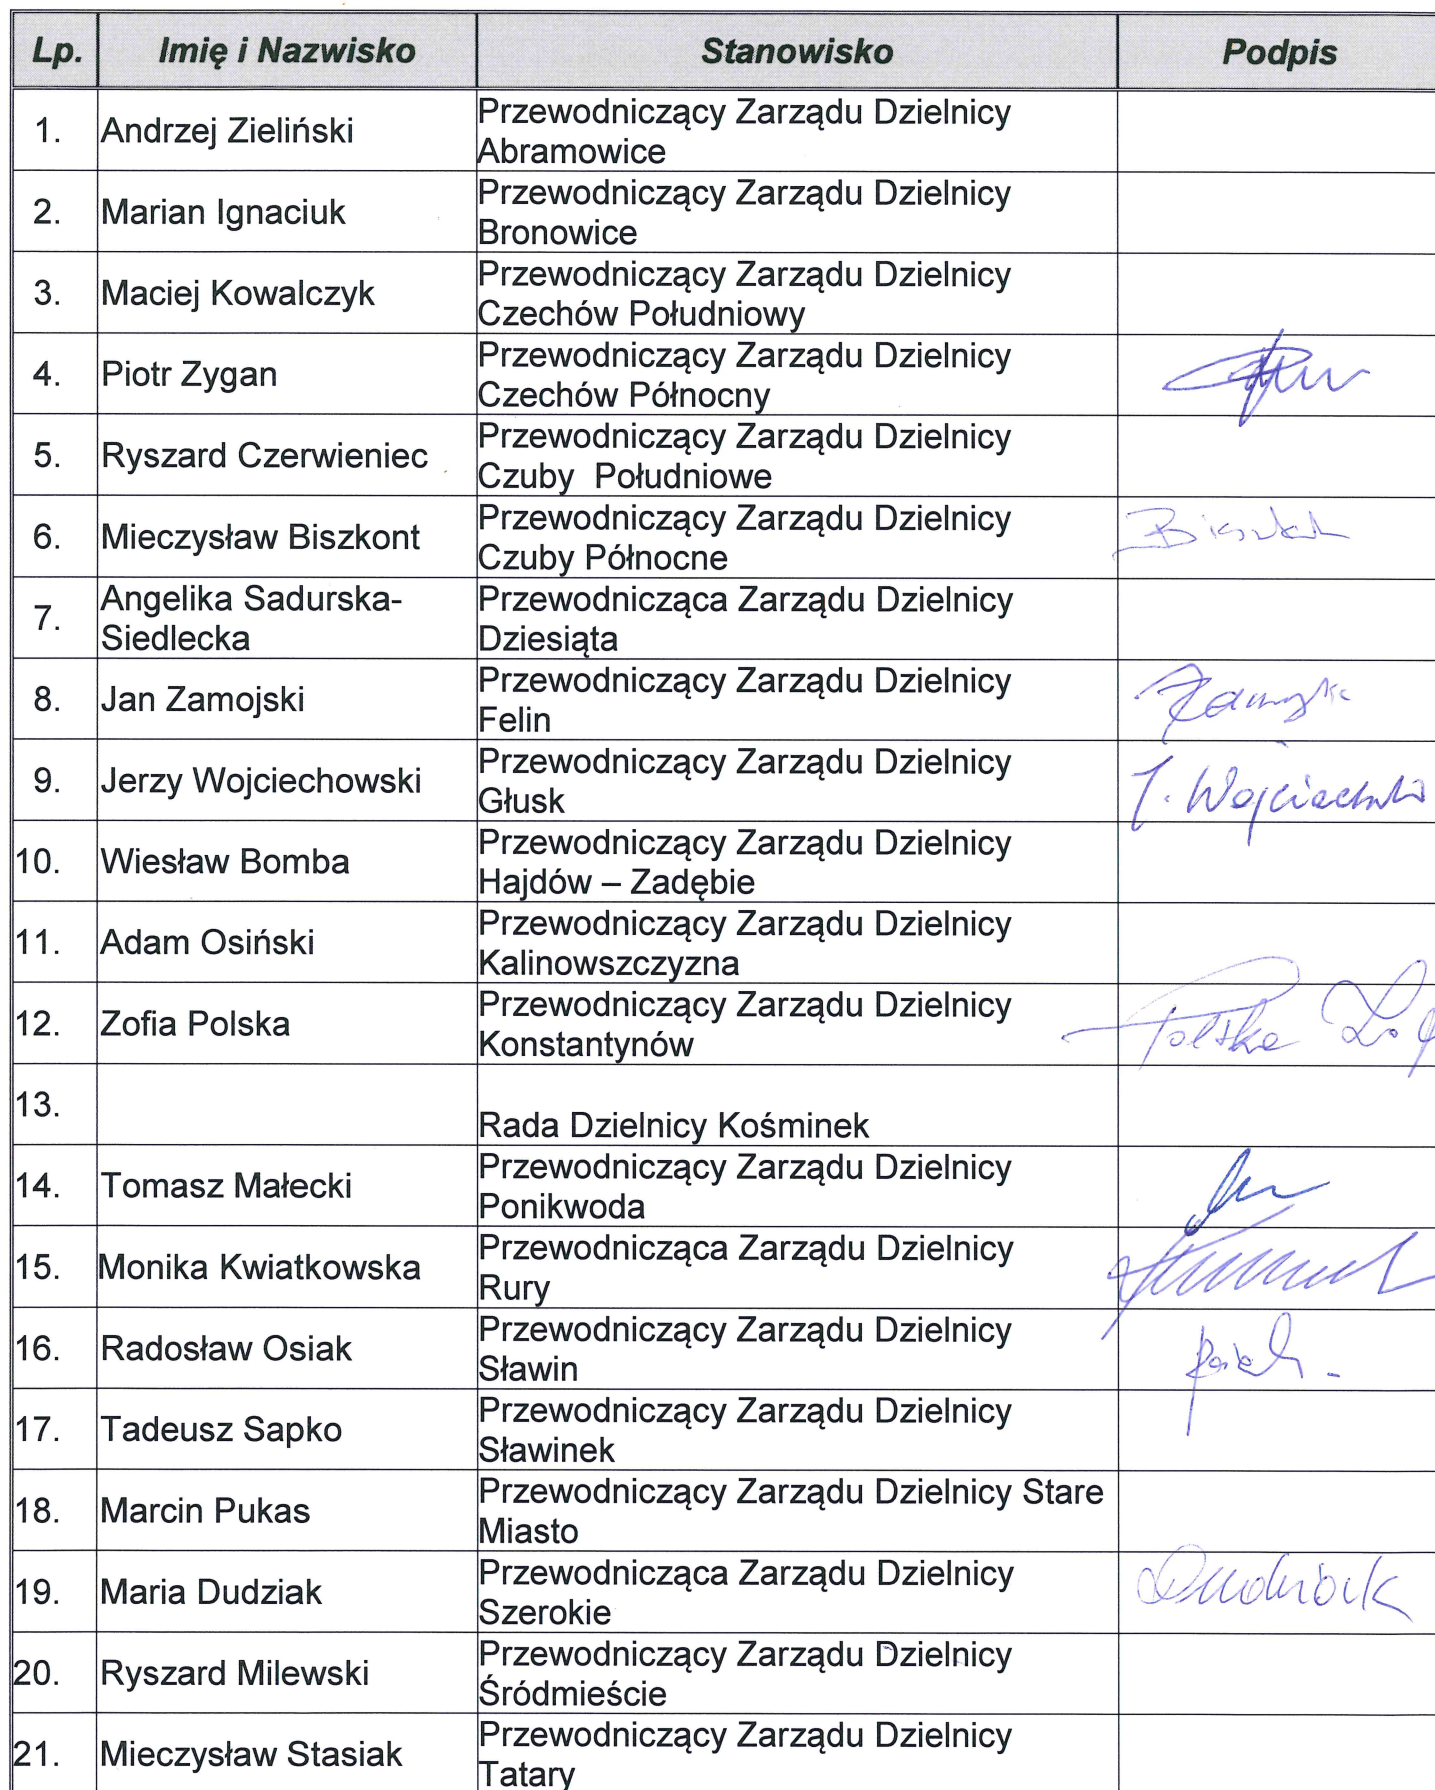 Lp. Imię i Nazwisko Stanowisko Podpis
1. Andrzej Zieliński Przewodniczący Zarządu Dzielnicy
Abramowice
2. Marian Ignaciuk Przewodniczący Zarządu Dzielnicy
Bronowice
3. Maciej Kowalczyk Przewodniczący Zarządu Dzielnicy
Czechów Południowy
4. Piotr Zygan Przewodniczący Zarządu Dzielnicy
Czechów Północny
5. Ryszard Czerwieniec Przewodniczący Zarządu Dzielnicy
Czuby Południowe
6. Mieczysław Biszkont Przewodniczący Zarządu Dzielnicy
Czuby Północne
7. Angelika Sadurska- Przewodnicząca Zarządu Dzielnicy
Siedlecka Dziesiąta
8. Jan Zamojski Przewodniczący Zarządu Dzielnicy
Felin
9. Jerzy Wojciechowski Przewodniczący Zarządu Dzielnicy
Głusk J. Wojciechowski
10. Wiesław Bomba Przewodniczący Zarządu Dzielnicy
Hajdów – Zadębie
11. Adam Osiński Przewodniczący Zarządu Dzielnicy
Kalinowszczyzna
12. Zofia Polska Przewodniczący Zarządu Dzielnicy
Konstantynów Polska
13.
Rada Dzielnicy Kośminek
14. Tomasz Małecki Przewodniczący Zarządu Dzielnicy
Ponikwoda
15. Monika Kwiatkowska Przewodnicząca Zarządu Dzielnicy
Rury
16. Radosław Osiak Przewodniczący Zarządu Dzielnicy
Sławin
17. Tadeusz Sapko Przewodniczący Zarządu Dzielnicy
Sławinek
18. Marcin Pukas Przewodniczący Zarządu Dzielnicy Stare
Miasto
19. Maria Dudziak Przewodnicząca Zarządu Dzielnicy
Szerokie Dudziak
20. Ryszard Milewski Przewodniczący Zarządu Dzielnicy
Śródmieście
21. Mieczysław Stasiak Przewodniczący Zarządu Dzielnicy
Tatary